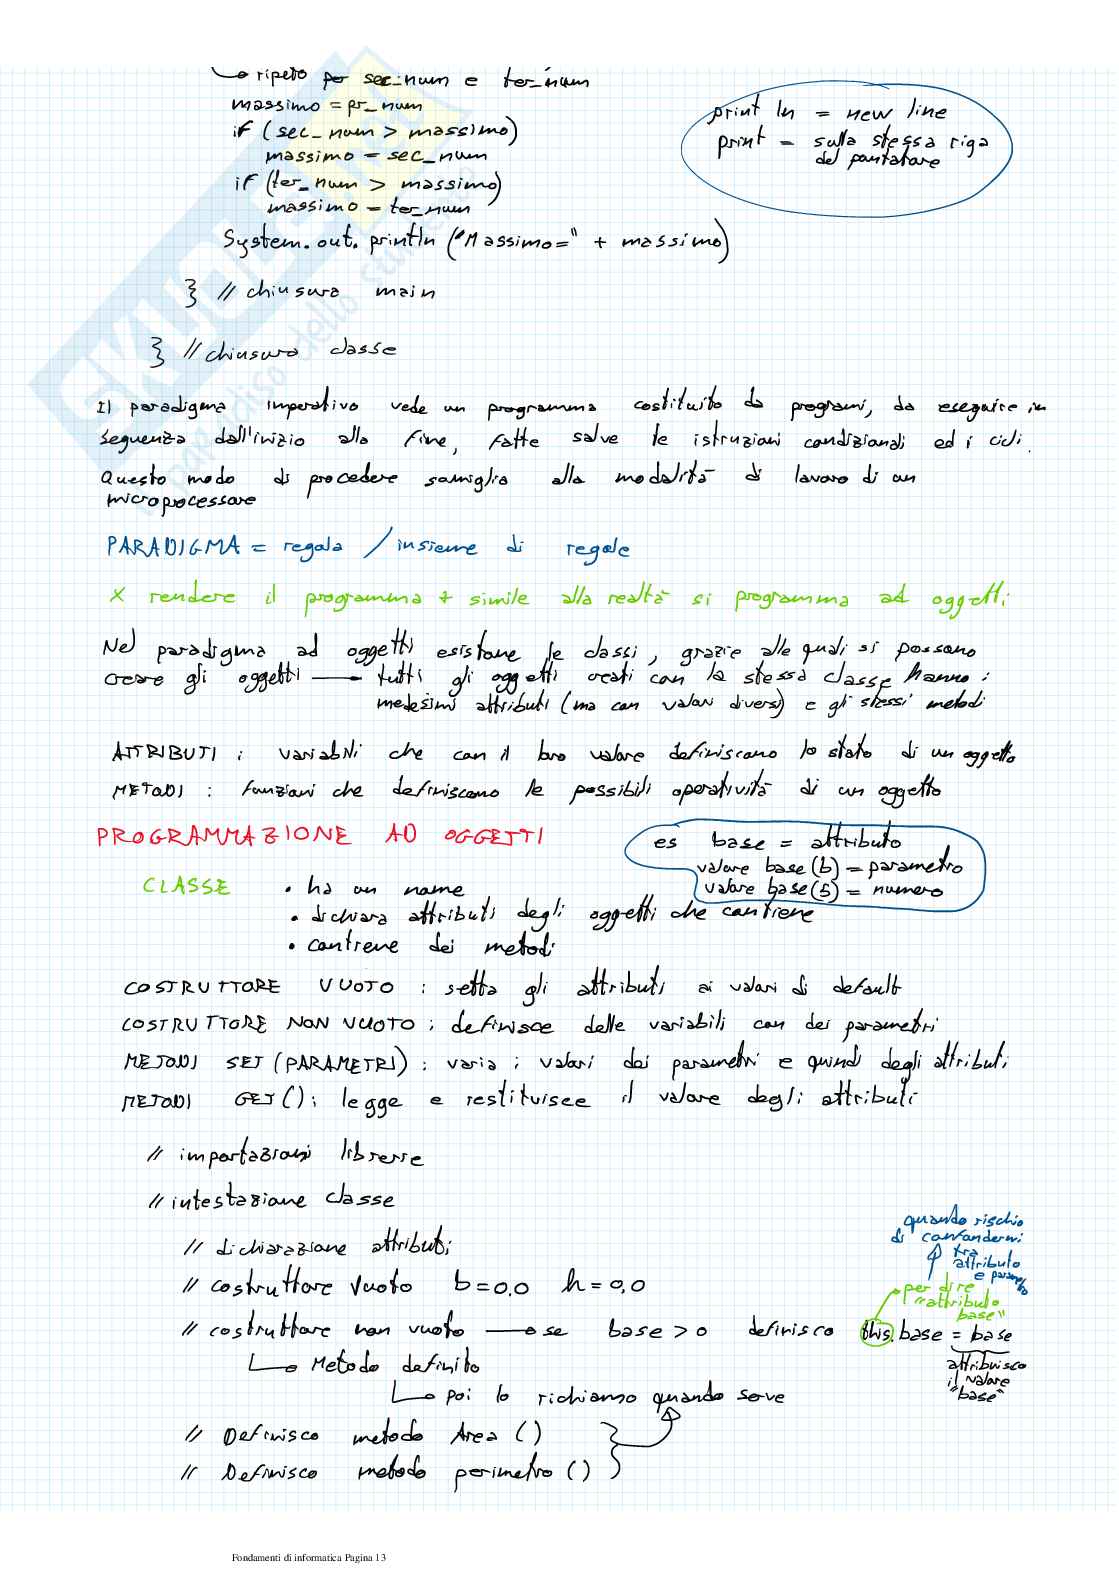 ripeto per sec_num e ter_num
massimo = pr_num
if (sec_num > massimo)
massimo = sec_num
if (ter_num > massimo)
massimo = ter_num
System.out.println ("Massimo=" + massimo)
print ln = new line
print = sulla stessa riga
del puntatore
} // chiusura main
} // chiusura classe
Il paradigma imperativo vede un programma costituito da programi, da eseguire in
sequenza dall'inizio alla fine, fatte salve le istruzioni condizionali ed i cicli.
Questo modo di procedere somiglia alla modalità di lavoro di un
microprocessore
PARADIGMA = regola / insieme di regole
X rendere il programma + simile alla realtà si programma ad oggetti
Nel paradigma ad oggetti esistono le classi, grazie alle quali si possono
creare gli oggetti → tutti gli oggetti creati con la stessa classe hanno:
medesimi attributi (ma con valori diversi) e gli stessi metodi
ATTRIBUTI : variabili che con il loro valore definiscono lo stato di un oggetto
METODI : funzioni che definiscono le possibili operatività di un oggetto
PROGRAMMAZIONE AD OGGETTI
es base = attributo
valore base (b) = parametro
valore base (5) = numero
CLASSE • ha un nome
• dichiara attributi degli oggetti che contiene
• contiene dei metodi
COSTRUTTORE VUOTO : setta gli attributi ai valori di default
COSTRUTTORE NON VUOTO : definisce delle variabili con dei parametri
METODI SET (PARAMETRI) : varia i valori dei parametri e quindi degli attributi
METODI GET () : legge e restituisce il valore degli attributi
// importazioni librerie
// intestazione classe
// dichiarazione attributi
// costruttore vuoto b=0,0 h=0,0
// costruttore non vuoto → se base > 0 definisco this.base = base
quando rischio
di confondermi
tra
attributo
e parametro
per dire
"attributo
base"
attribuisco
il valore
"base"
Metodo definito
poi lo richiamo quando serve
// Definisco metodo Area ()
// Definisco metodo perimetro ()
Fondamenti di informatica Pagina 13